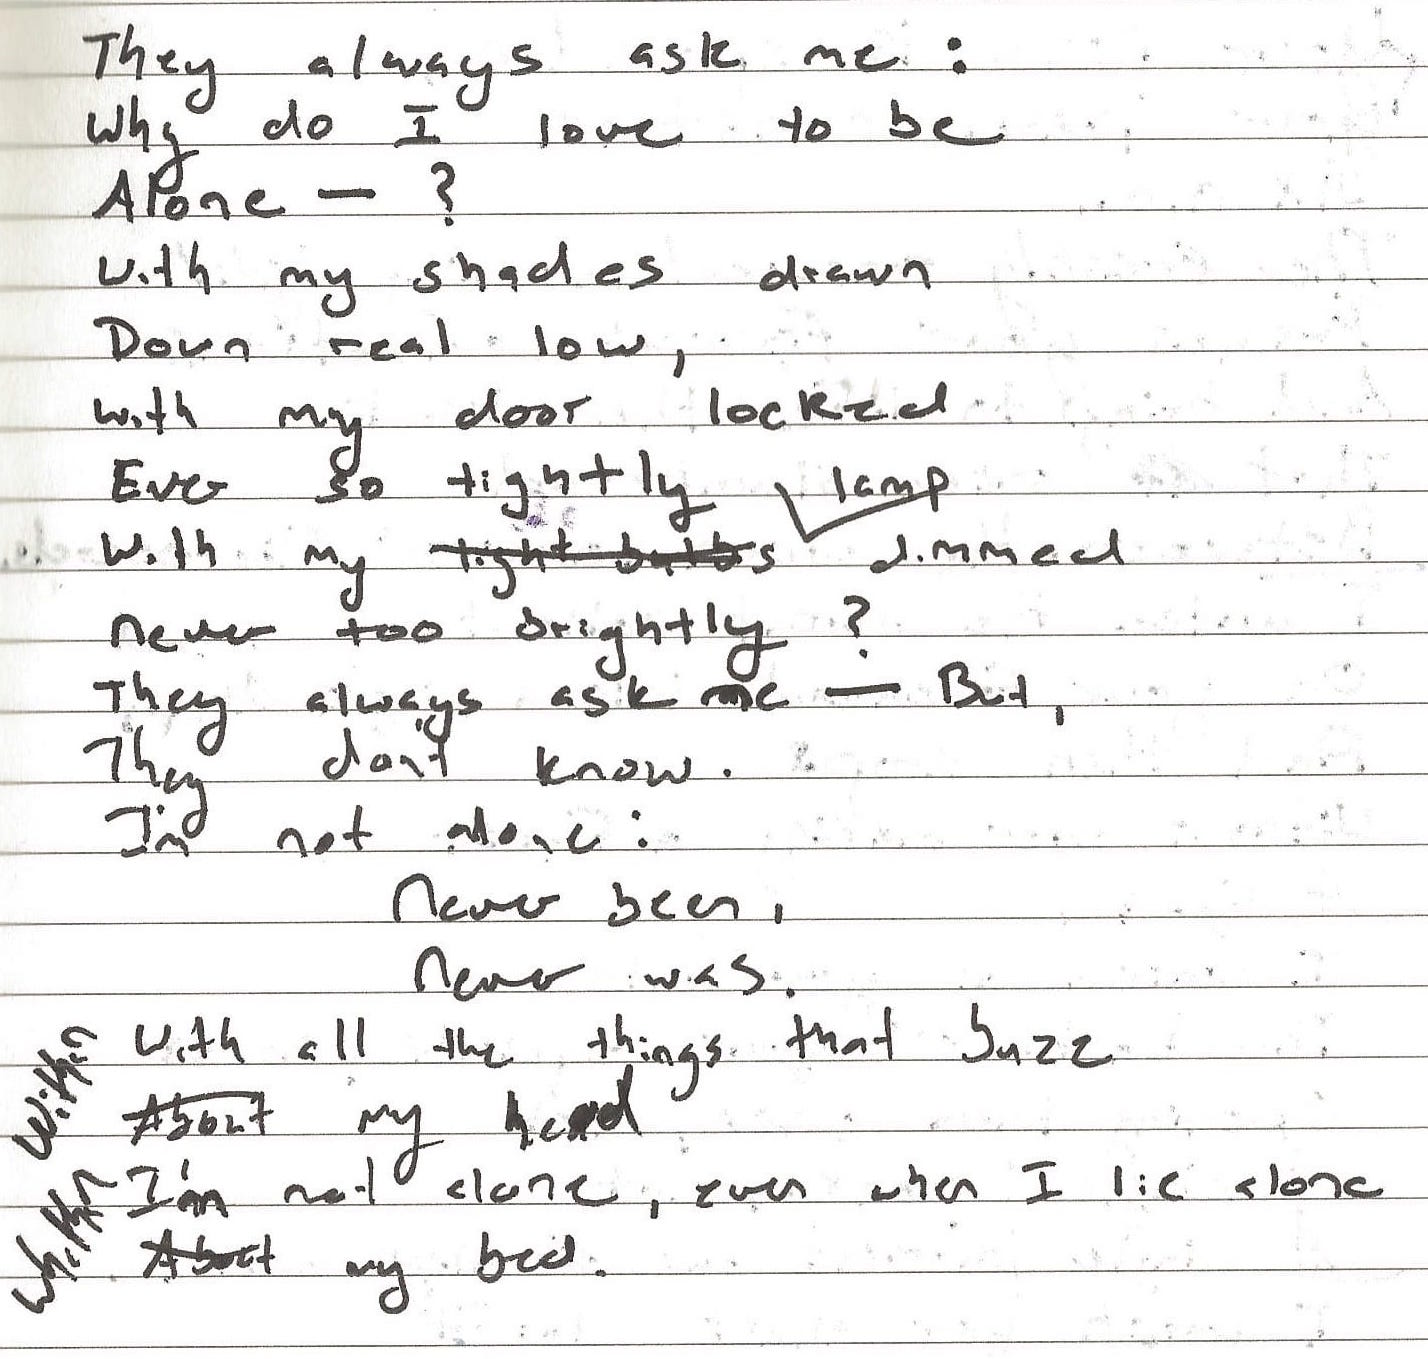 They always ask me:
Why do I love to be
Alone — ?
With my shades drawn
Down real low,
with my door locked
Ever so tightly
lamp
With my light bulbs dimmed
never too brightly?
They always ask me — But,
They don't know.
I'm not alone:
Never been,
Never was.
With all the things that buzz
Within
About my head
I'm not alone, even when I lie alone
Whithin
About my bed.